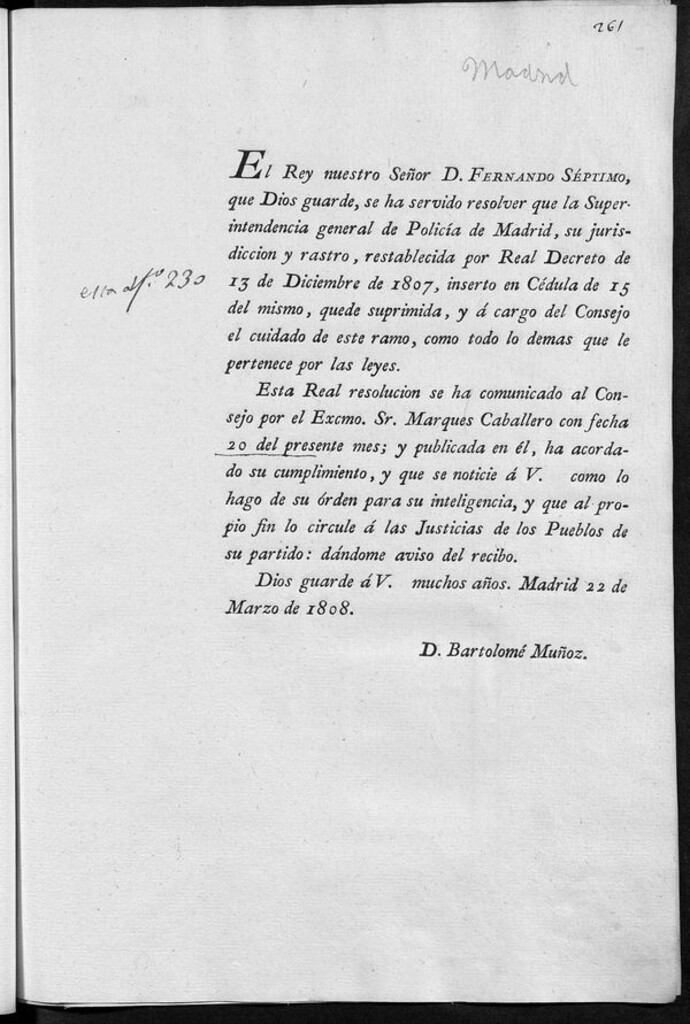 261
Madrid
El Rey nuestro Señor D. FERNANDO SÉPTIMO,
que Dios guarde, se ha servido resolver que la Super-
intendencia general de Policía de Madrid, su juris-
diccion y rastro, restablecida por Real Decreto de
13 de Diciembre de 1807, inserto en Cédula de 15
del mismo, quede suprimida, y á cargo del Consejo
el cuidado de este ramo, como todo lo demas que le
pertenece por las leyes.
esta 230
Esta Real resolucion se ha comunicado al Con-
sejo por el Excmo. Sr. Marques Caballero con fecha
20 del presente mes; y publicada en él, ha acorda-
do su cumplimiento, y que se noticie á V. como lo
hago de su órden para su inteligencia, y que al pro-
pio fin lo circule á las Justicias de los Pueblos de
su partido: dándome aviso del recibo.
Dios guarde á V. muchos años. Madrid 22 de
Marzo de 1808.
D. Bartolomé Muñoz.